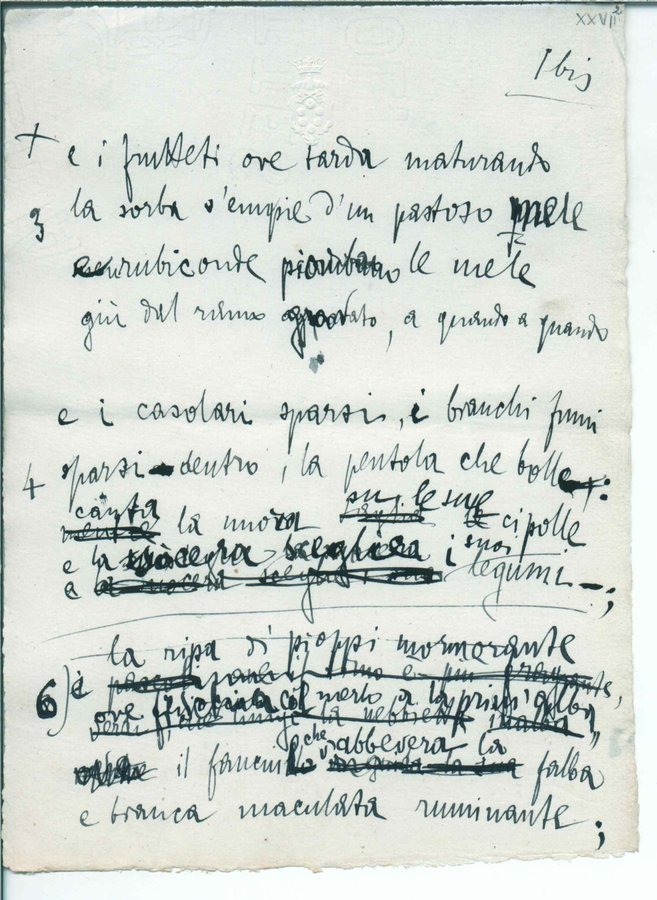 XXVII²
I bis
+ e i frutteti ove tarda maturando
3 la sorba s'empie d'un pastoso mele
e rubiconde piombano le mele
giù dal ramo aggravato, a quando a quando
e i casolari sparsi, i bianchi fumi
4 sparsi dentro, la pentola che bolle:
canta la nuora su le sue cipolle
e la suocera sceglie i suoi legumi;
la ripa di pioppi mormorante
6) e
ove fischia col merlo a la prim'alba,
il fanciul che abbevera la falba
e bianca maculata ruminante;